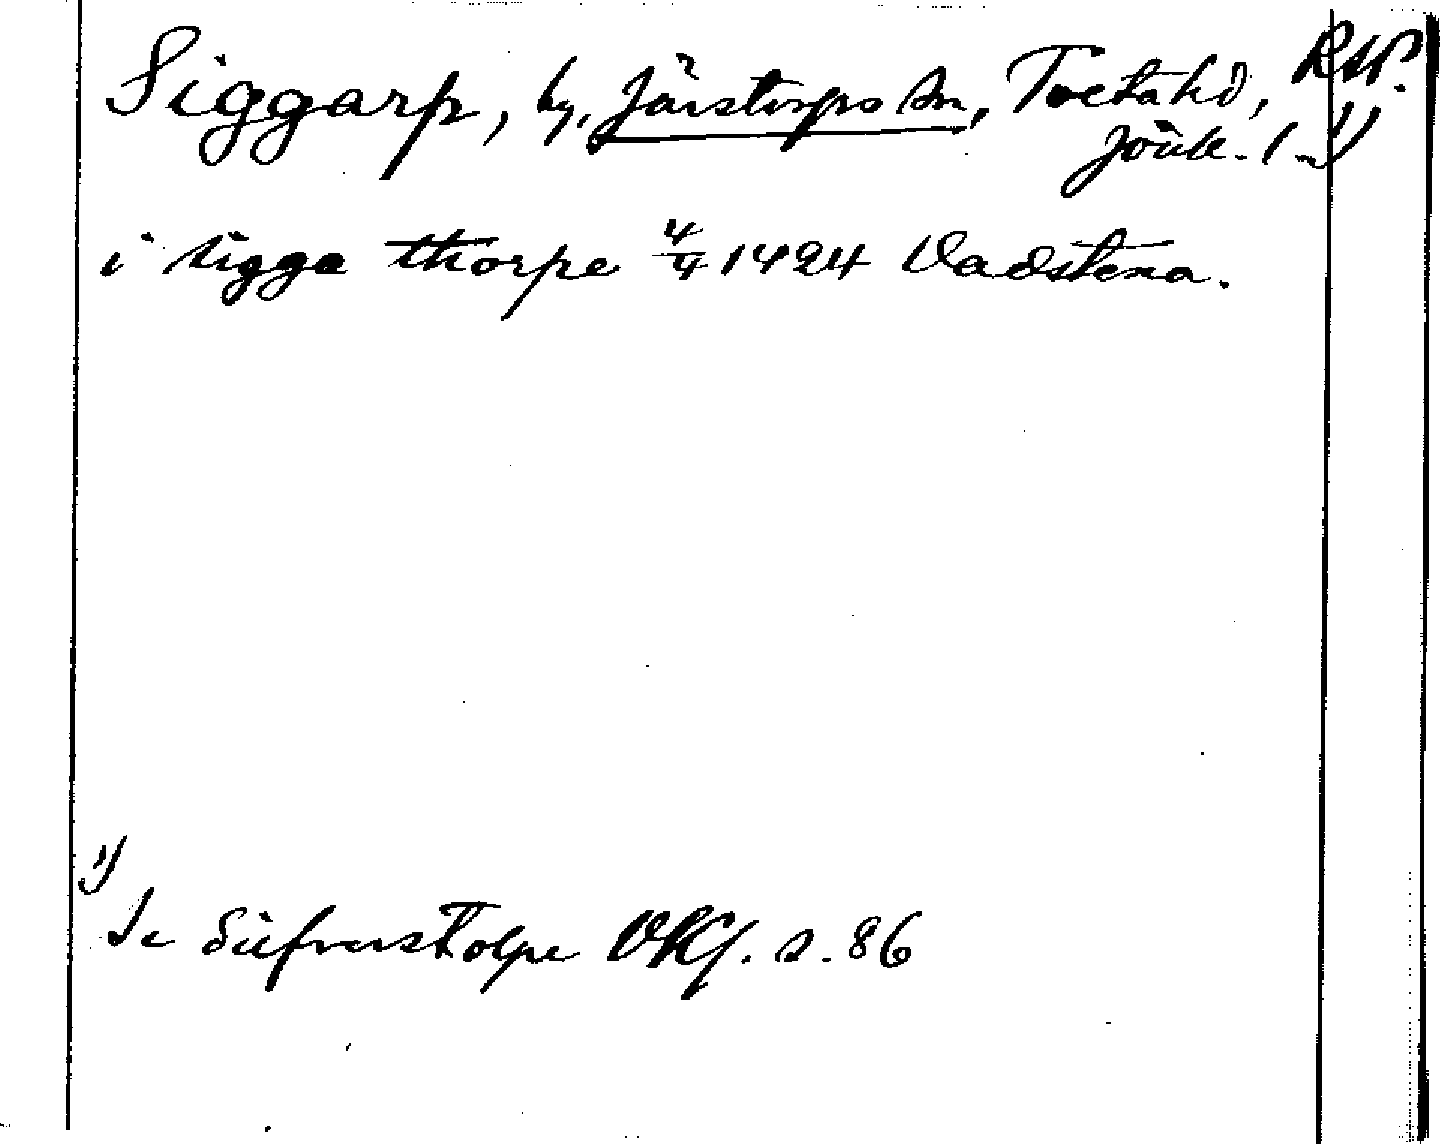 Siggarp, by, Järstorps sn, Tveta hd, RAP.
Jönk. l. 1)
i sigga thorpe 4/9 1424 Vadstena.
1)
Se Silfverstolpe VKJ. s. 86